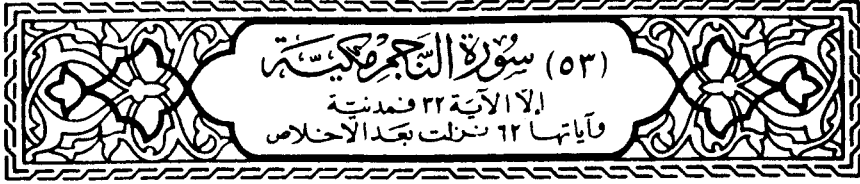 (٥٣) سُورَة النَّجْمِ مَكيَّة
إلّا الآيَة ٣٢ فمَدنيَّة
وَآياتهَا ٦٢ نزلت بَعْد الاخلاص